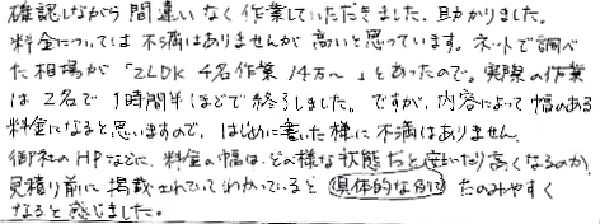 確認しながら間違いなく作業していただきました。助かりました。
料金については不満はありませんが高いと思っています。ネットで調べ
た相場が「2LDK 4名作業 14万〜」とあったので。実際の作業
は2名で1時間半ほどで終了しました。ですが、内容によって幅のある
料金になると思いますので、はじめに書いた様に不満はありません。
御社のHPなどに、料金の幅は、どの様な状態だと安いたり高くなるのか、
見積り前に掲載されていてわかっていると具体的な例でたのみやすく
なると感じました。